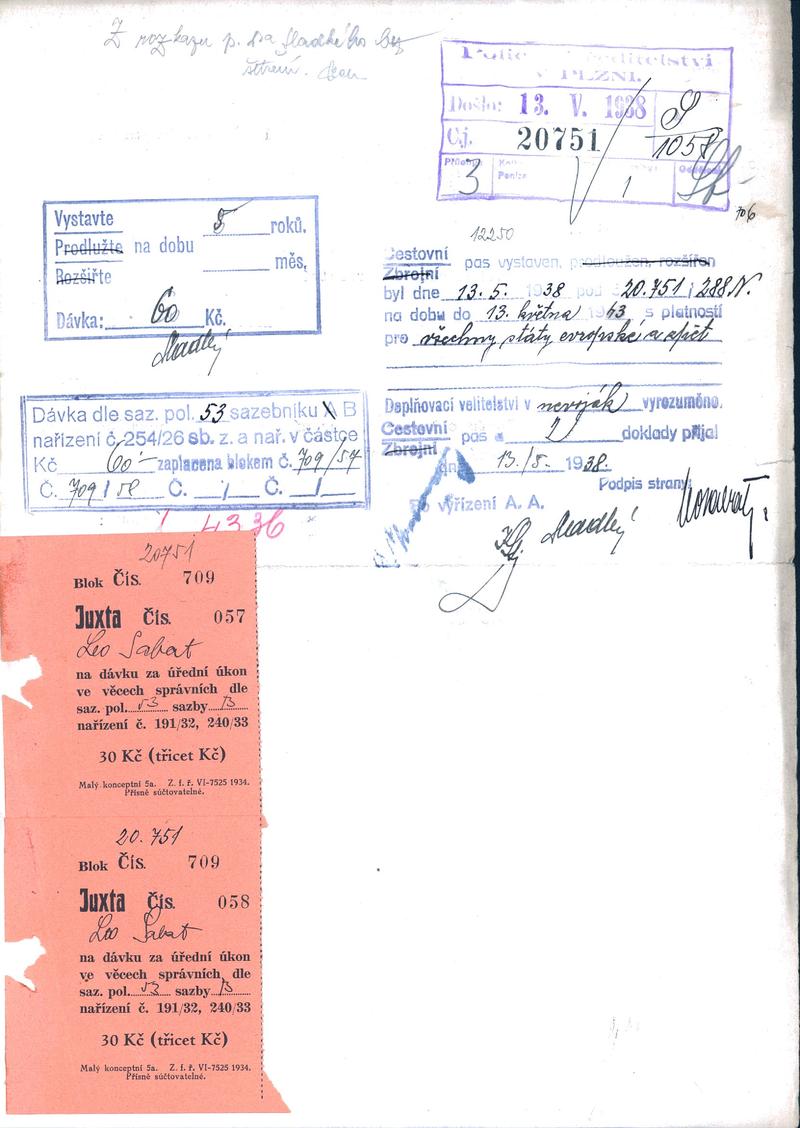 Z rozkazu p. dra Hladkého bez
Policejní ředitelství
v PLZNI.
Došlo: 13. V. 1938
Č.j. 20751
S
1058
Příloh
3
1
706
Vystavte
Prodlužte na dobu 5 roků,
Rozšiřte měs,
Dávka: 60 Kč.
Hladký
12250
Cestovní
Zbrojní pas vystaven, prodloužen, rozšířen
byl dne 13. 5. 1938 pod 20.751 ; 288.N.
na dobu do 13. května 1943 s platností
pro všechny státy evropské a zpět
Doplňovací velitelství v nevoják vyrozuměno.
Cestovní
Zbrojní pas a 2 doklady přijal
dne 13./5. 1938.
Podpis strany:
Po vyřízení A. A.
Hladký
Dávka dle saz. pol. 53 sazebníku A B
nařízení č. 254/26 sb. z. a nař. v částce
Kč 60·- zaplacena blokem č. 709/57
Č. 709/58 Č. / Č. /
4336
20751
Blok Čís. 709
Juxta Čís. 057
Leo Sabat
na dávku za úřední úkon
ve věcech správních dle
saz. pol. 53 sazby B
nařízení č. 191/32, 240/33
30 Kč (třicet Kč)
Malý konceptní 5a. Z. f. ř. VI-7525 1934.
Přísně súčtovatelné.
20.751
Blok Čís. 709
Juxta Čís. 058
Leo Sabat
na dávku za úřední úkon
ve věcech správních dle
saz. pol. 53 sazby B
nařízení č. 191/32, 240/33
30 Kč (třicet Kč)
Malý konceptní 5a. Z. f. ř. VI-7525 1934.
Přísně súčtovatelné.